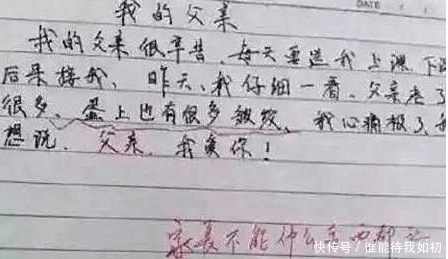 我的父亲
DATE
我的父亲很辛苦、每天要送我上课、下课
后来接我、昨天、我仔细一看、父亲老了
很多、蛋上也有很多皱纹、我心痛极了、我
想说、父亲、我爱你！
家长不能什么东西都
快传号／谁能待我如初